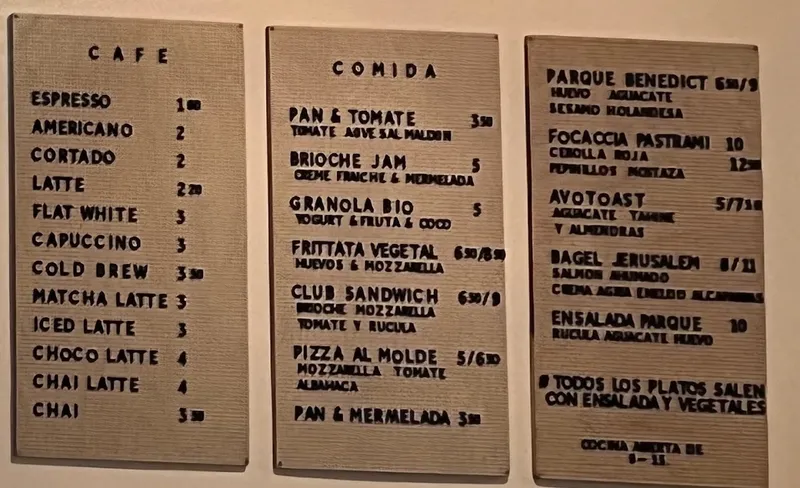 CAFE
ESPRESSO 1
AMERICANO 2
CORTADO 2
LATTE 2
FLAT WHITE 3
CAPUCCINO 3
COLD BREW 3
MATCHA LATTE 3
ICED LATTE 3
CHOCO LATTE 4
CHAI LATTE 4
CHAI 3
COMIDA
PAN & TOMATE 3
TOMATE AOVE SAL MALDON
BRIOCHE JAM 5
CREME FRAICHE & MERMELADA
GRANOLA BIO 5
YOGURT & FRUTA & COCO
FRITTATA VEGETAL
HUEVOS & MOZZARELLA
CLUB SANDWICH
BRIOCHE MOZZARELLA
TOMATE Y RUCULA
PIZZA AL MOLDE
MOZZARELLA TOMATE
ALBAHACA
PAN & MERMELADA 3
PARQUE BENEDICT
HUEVO AGUACATE
SESAMO HOLANDESA
FOCACCIA PASTRAMI 10
CEBOLLA ROJA 12
PEPINILLOS MOSTAZA
AVOTOAST
AGUACATE
Y ALMENDRAS
BAGEL JERUSALEM 8/11
SALMON AHUMADO
CREMA AGRIA ENELDO ALCAPARRAS
ENSALADA PARQUE 10
RUCULA AGUACATE HUEVO
# TODOS LOS PLATOS SALEN
CON ENSALADA Y VEGETALES
COCINA ABIERTA DE